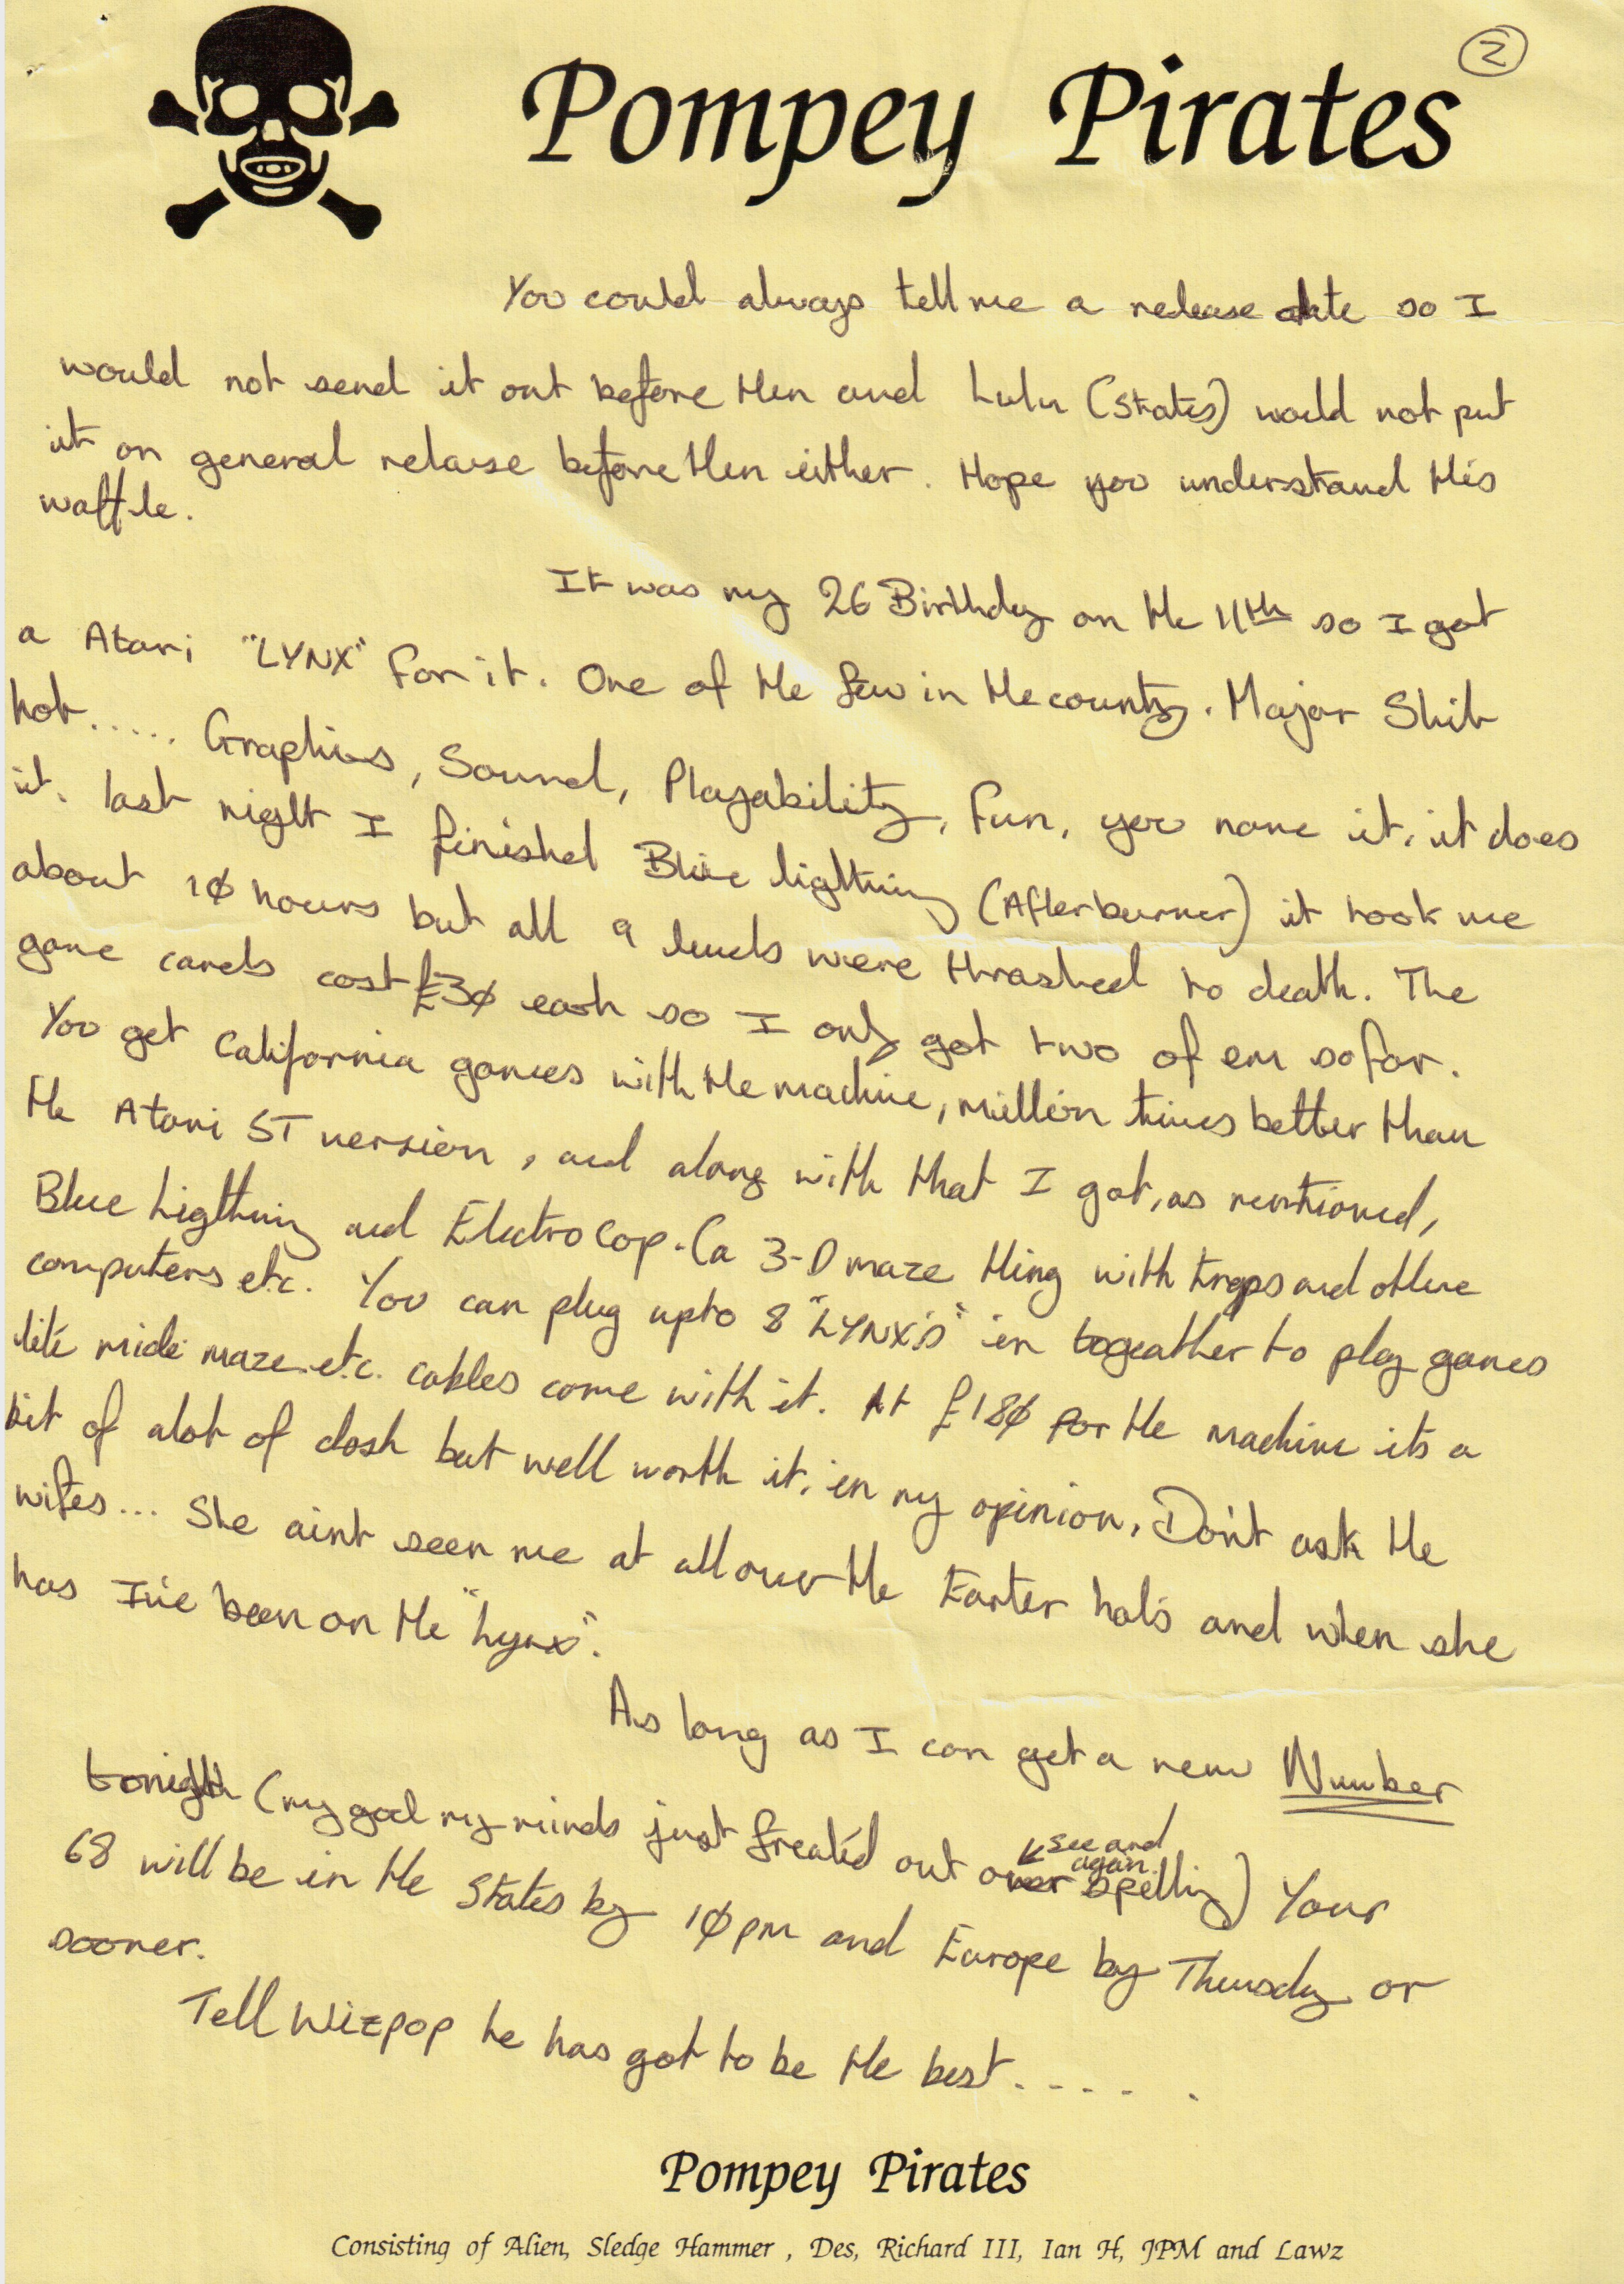 2
Pompey Pirates
You could always tell me a release date so I
would not send it out before then and Lulu (States) would not put
it on general relaese before then either. Hope you understand this
waffle.
It was my 26 Birthday on the 11th so I got
a Atari "LYNX" for it. One of the few in the country. Major Shit
hot..... Graphics, Sound, Playability, fun, you name it, it does
it. last night I finished Blue ligthning (Afterburner) it took me
about 10 hours but all 9 levels were thrashed to death. The
game cards cost £30 each so I only got two of em so far.
You get California games with the machine, million times better than
the Atari ST version, and along with that I got, as mentioned,
Blue Ligthning and Electro Cop. (a 3-D maze thing with traps and other
computers etc. You can plug upto 8 "LYNX's" in togeather to play games
like midi maze etc. cables come with it. At £180 for the machine its a
bit of alot of dosh but well worth it, in my opinion, Don't ask the
wifes... She aint seen me at all over the Easter hols and when she
has I've been on the "Lynx".
As long as I can get a new Number
tonight (my god my minds just freak'd out over spelling) Your
see and
again.
68 will be in the States by 10pm and Europe by Thursday or
sooner.
Tell Wizpop he has got to be the best.....
Pompey Pirates
Consisting of Alien, Sledge Hammer , Des, Richard III, Ian H, JPM and Lawz